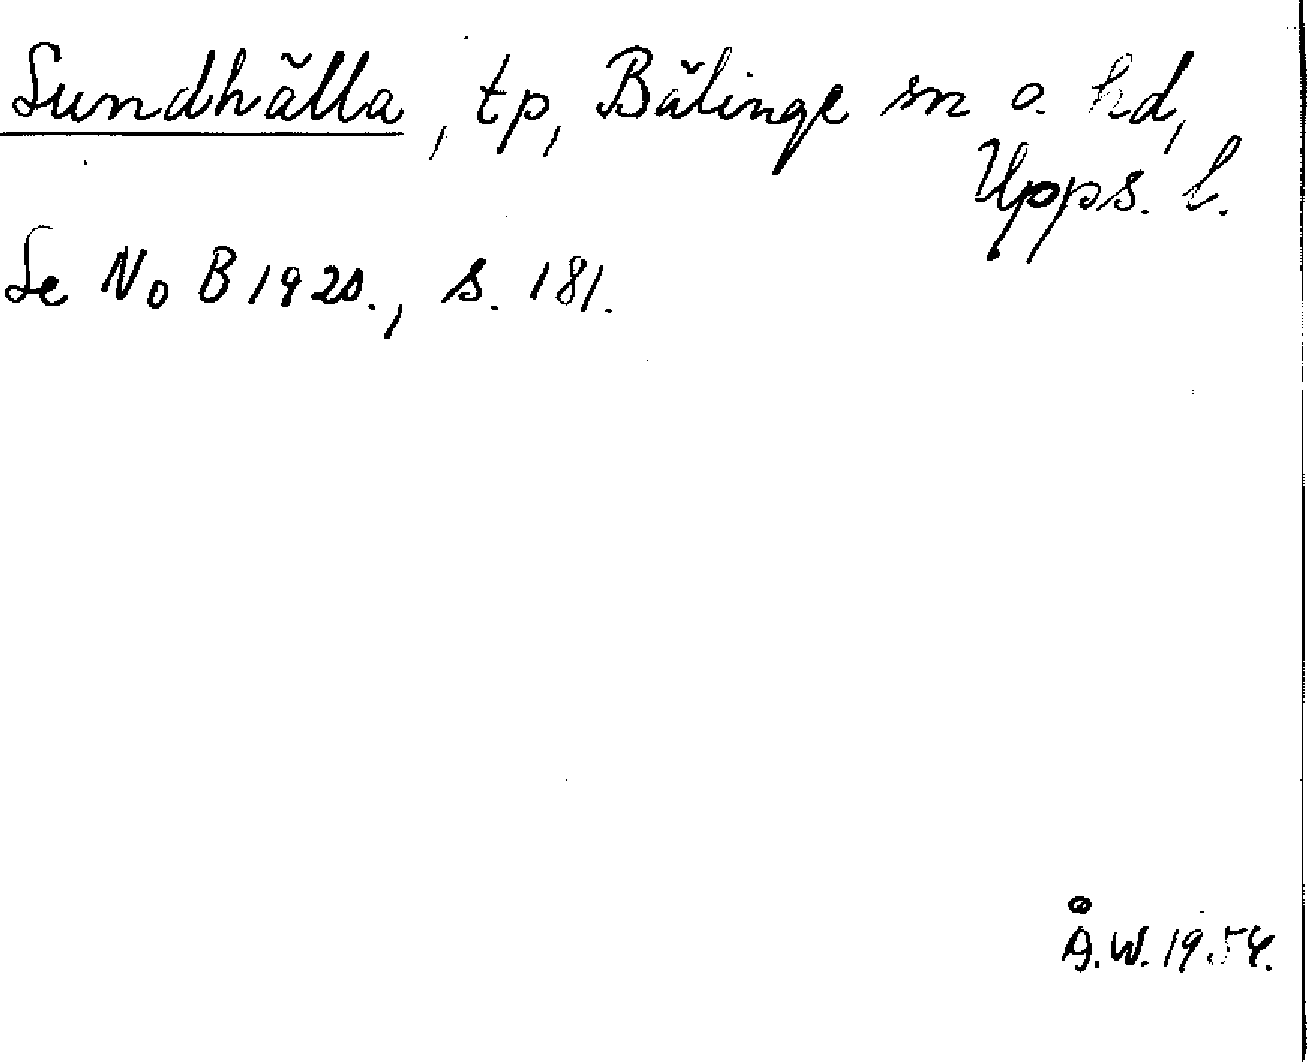 Sundhälla, tp, Bälinge sn o hd,
Upps. l.
Se NoB 1920., s. 181.
Å.W. 1954.